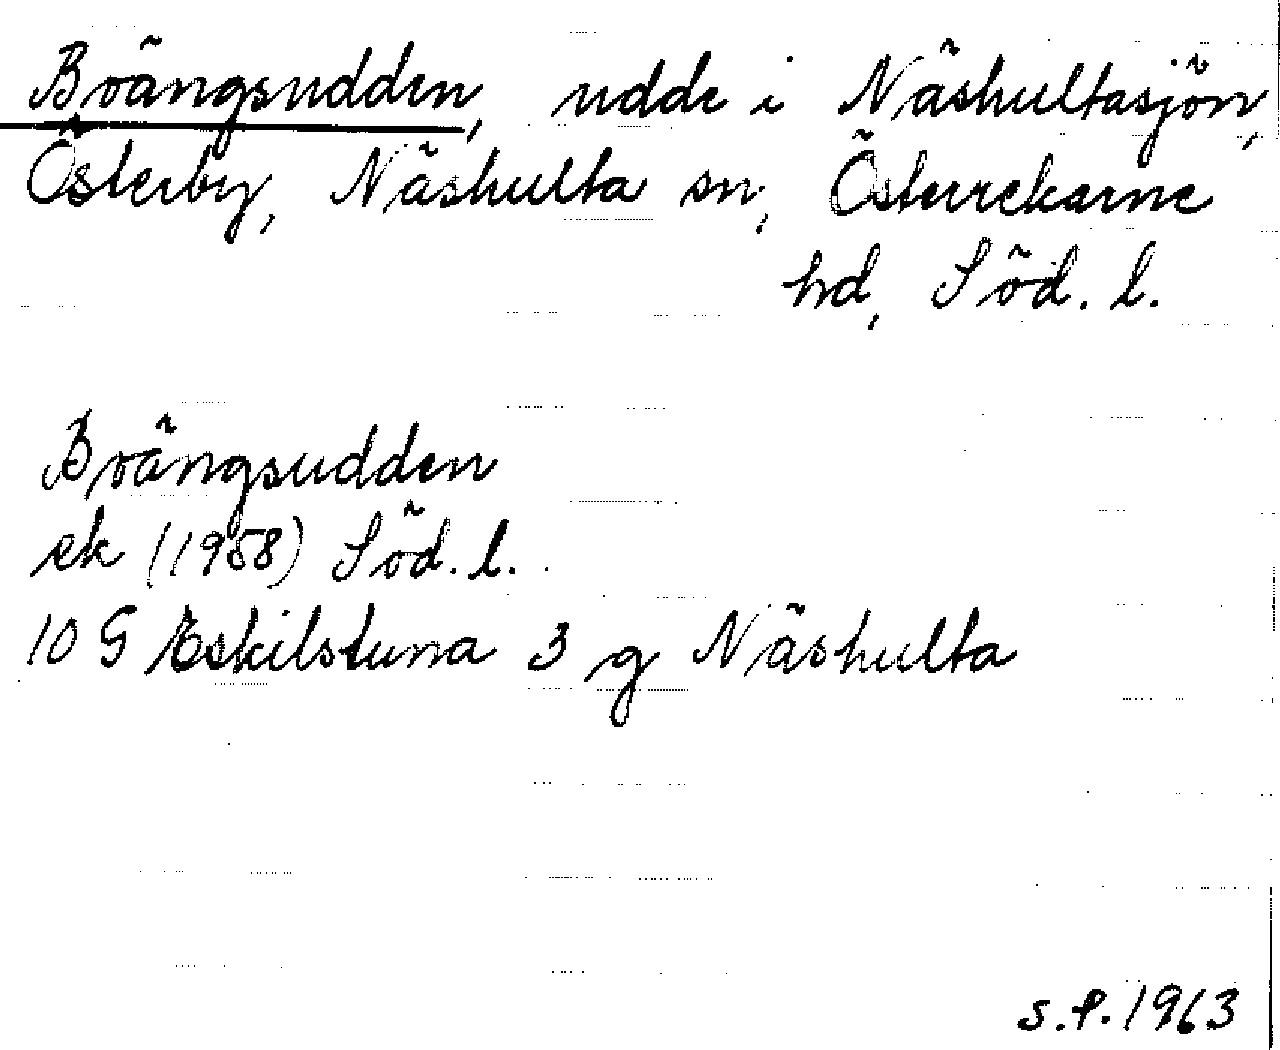 Brängsudden, udde i Näshultasjön,
Österby, Näshulta sn, Österrekarne
hd, Söd. l.
Brängsudden
ek (1958) Söd. l.
10 G Eskilstuna 3 g Näshulta
s.P.1963